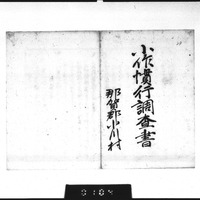 小作慣行調査書
那賀郡小川村
0104